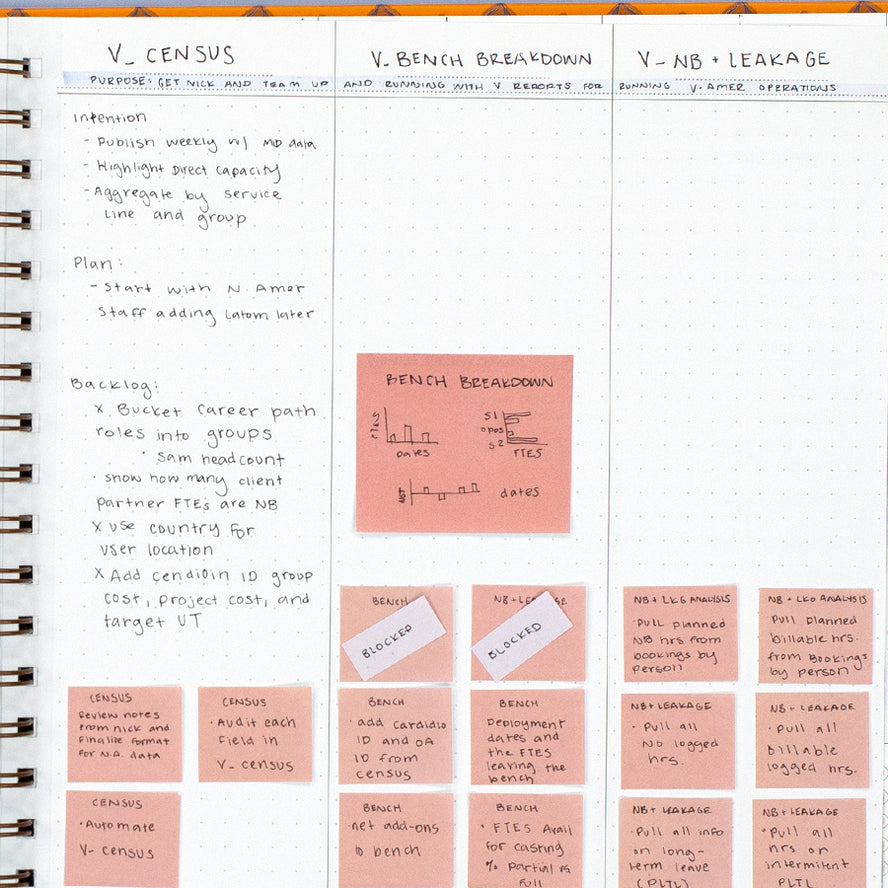 V_ CENSUS
V_BENCH BREAKDOWN
V_ NB + LEAKAGE
PURPOSE: GET NICK AND TEAM UP AND RUNNING WITH V REPORTS FOR RUNNING V-AMER OPERATIONS
Intention
- Publish weekly w/ MD data
- Highlight Direct capacity
- Aggregate by service
line and group
Plan:
- Start with N. Amer
Staff adding Latam later
Backlog:
x Bucket career path
roles into groups
• Sam headcount
• show how many client
partner FTE's are NB
x use country for
user location
x Add ID group
cost, project cost, and
target UT
CENSUS
Review notes
from nick and
Finalize format
for N.A. data
CENSUS
• Audit each
field in
V_ census
CENSUS
• Automate
V_ census
BENCH BREAKDOWN
FTES
Dates
S1
opos
S2
FTES
NET
dates
BENCH
BLOCKED
NB + LEAKAGE
BLOCKED
BENCH
• add cardidio
ID and OA
ID from
census
BENCH
Deployment
dates and
the FTES
leaving the
bench
BENCH
• net add-ons
to bench
BENCH
• FTES Avail
for casting
% partial vs
full
NB + LKG ANALYSIS
• Pull planned
NB hrs from
bookings by
person
NB + LKG ANALYSIS
Pull planned
billable hrs.
from Bookings
by person
NB + LEAKAGE
• Pull all
No logged
hrs.
NB + LEAKAGE
• Pull all
billable
logged hrs.
NB + LEAKAGE
• Pull all info
on long-
term leave
(PLTL)
NB + LEAKAGE
• Pull all
hrs on
intermitent
PLTL